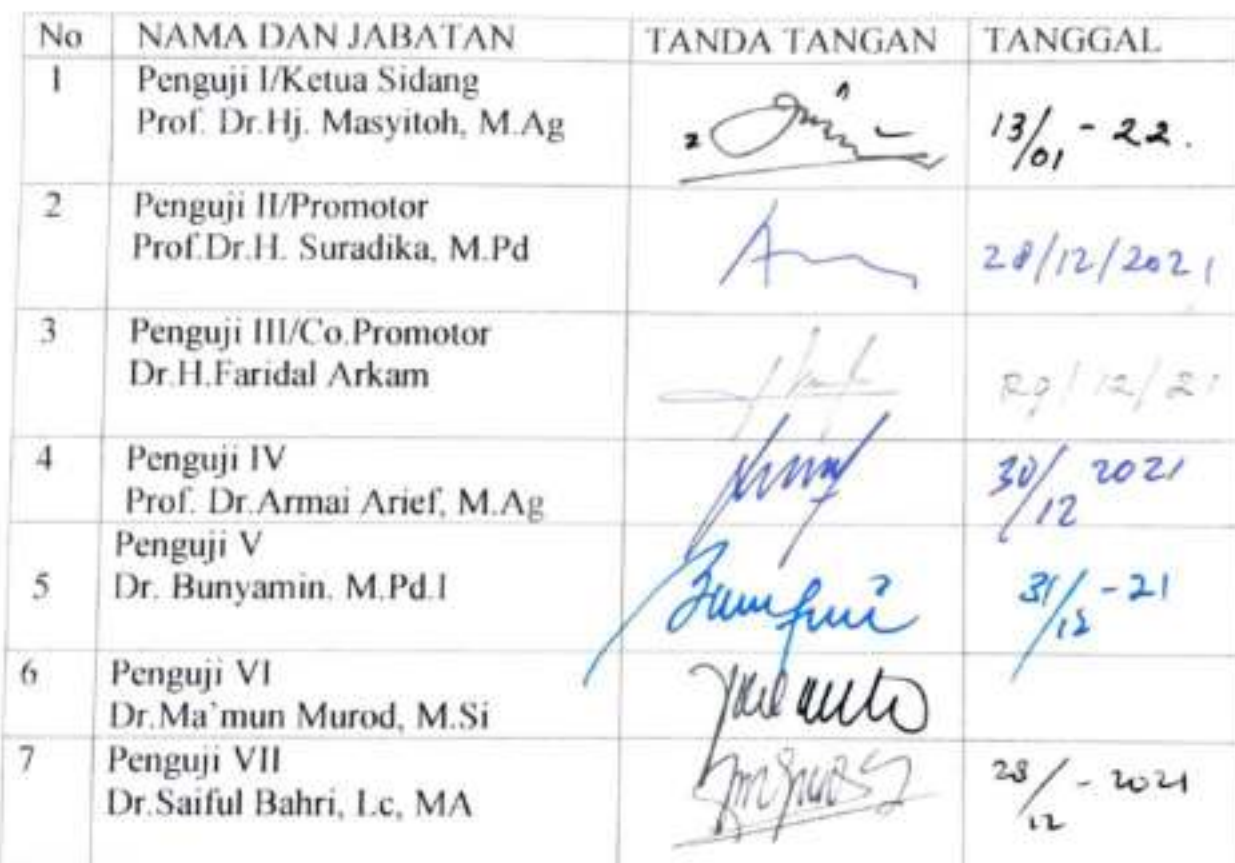 No NAMA DAN JABATAN TANDA TANGAN TANGGAL
1 Penguji I/Ketua Sidang
Prof. Dr.Hj. Masyitoh, M.Ag 13/01 - 22.
2 Penguji II/Promotor
Prof.Dr.H. Suradika, M.Pd 28/12/2021
3 Penguji III/Co.Promotor
Dr.H.Faridal Arkam 29/12/21
4 Penguji IV
Prof. Dr.Armai Arief, M.Ag 30/12 2021
Penguji V
5 Dr. Bunyamin. M.Pd.I 31/12 - 21
6 Penguji VI
Dr.Ma'mun Murod, M.Si
7 Penguji VII
Dr.Saiful Bahri, Lc, MA 28/12 - 2021